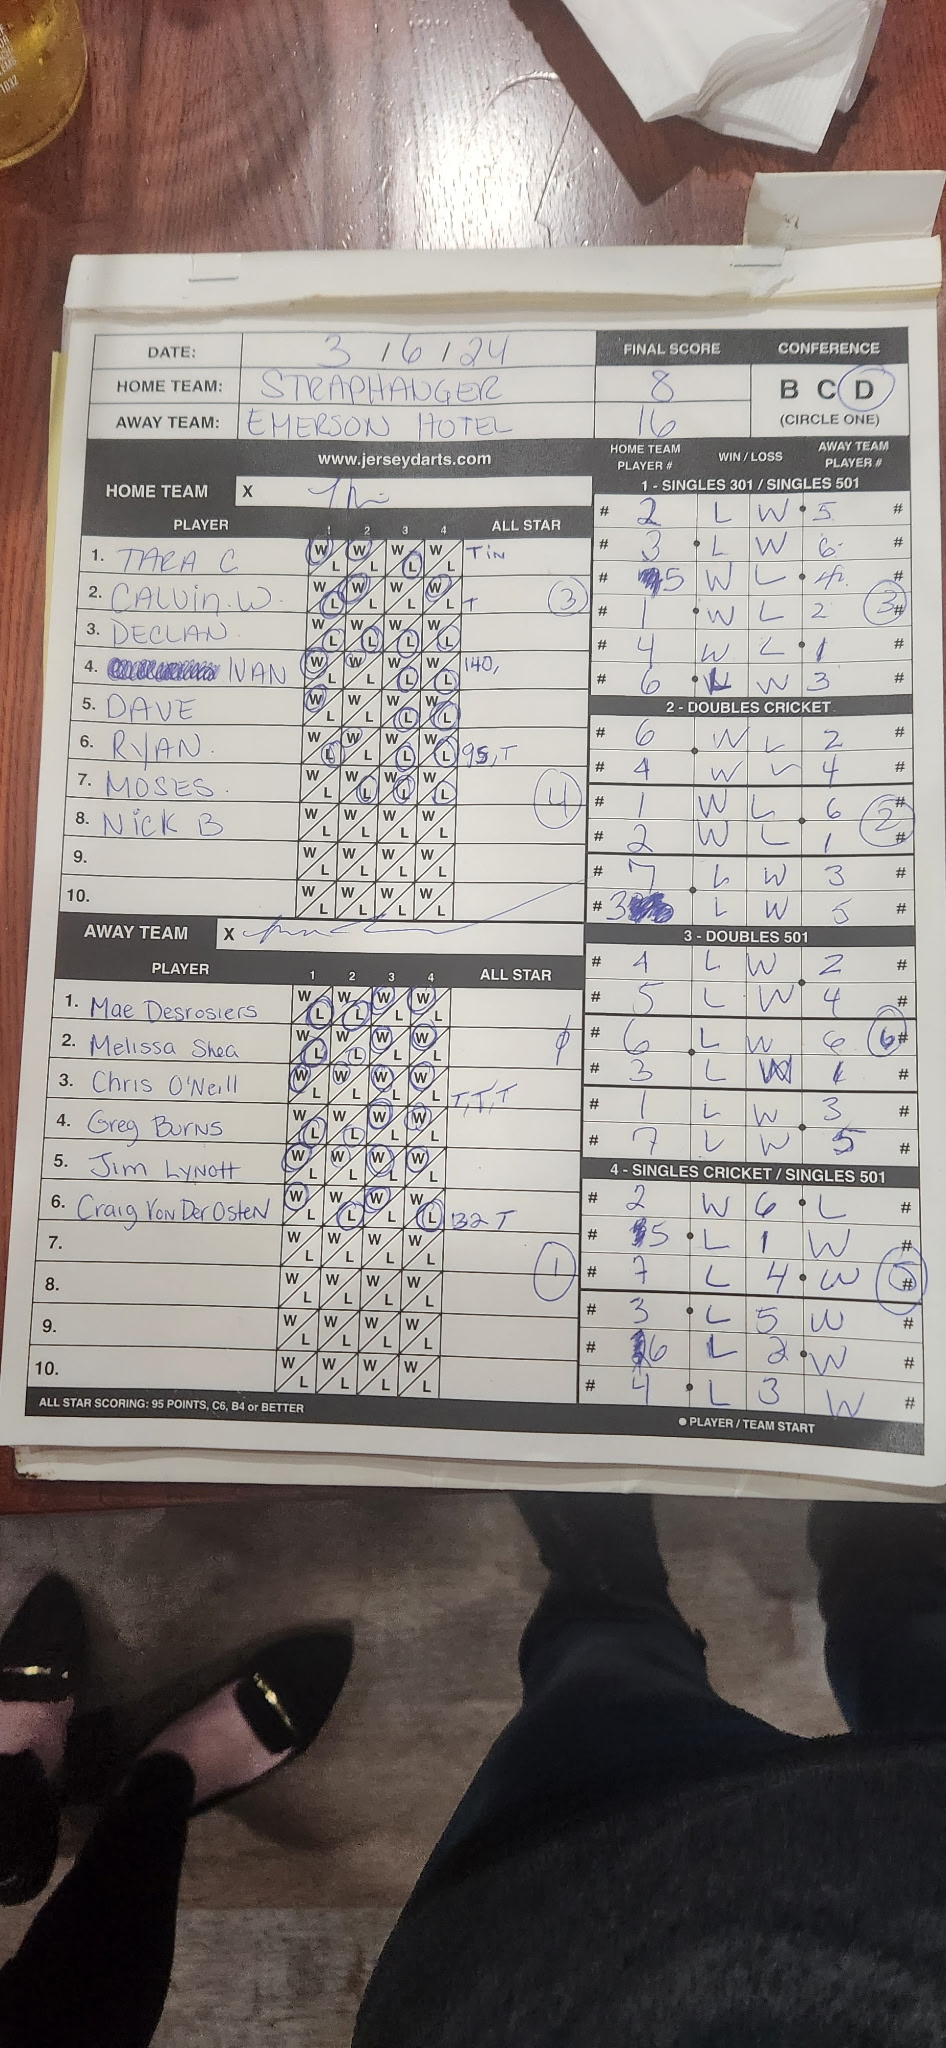 DATE: 3 / 6 / 24
FINAL SCORE CONFERENCE
HOME TEAM: STRAPHANGER 8
B C D
AWAY TEAM: EMERSON HOTEL 16
(CIRCLE ONE)
www.jerseydarts.com
HOME TEAM X
PLAYER 1 2 3 4 ALL STAR
1. TARA C W L W L W L W L T IN
2. CALVIN.W. W L W L W L W L T 3
3. DECLAN W L W L W L W L
4. IVAN W L W L W L W L 140,
5. DAVE W L W L W L W L
6. RYAN. W L W L W L W L 95, T
7. MOSES. W L W L W L W L 4
8. NICK B W L W L W L W L
9. W L W L W L W L
10. W L W L W L W L
AWAY TEAM X
PLAYER 1 2 3 4 ALL STAR
1. Mae Desrosiers W L W L W L W L
2. Melissa Shea W L W L W L W L
3. Chris O'Neill W L W L W L W L T,T,T
4. Greg Burns W L W L W L W L
5. Jim Lynott W L W L W L W L
6. Craig Von Der Osten W L W L W L W L 132 T
7. W L W L W L W L 1
8. W L W L W L W L
9. W L W L W L W L
10. W L W L W L W L
ALL STAR SCORING: 95 POINTS, C6, B4 or BETTER
HOME TEAM PLAYER # WIN / LOSS AWAY TEAM PLAYER #
1 - SINGLES 301 / SINGLES 501
# 2 L W 5 #
# 3 L W 6 #
# 5 W L 4 #
# 1 W L 2 3 #
# 4 W L 1 #
# 6 L W 3 #
2 - DOUBLES CRICKET
# 6 W L 2 #
# 4 W L 4 #
# 1 W L 6 #
# 2 W L 1 2 #
# 7 L W 3 #
# 3 L W 5 #
3 - DOUBLES 501
# 4 L W 2 #
# 5 L W 4 #
# 6 L W 6 6 #
# 3 L W 1 #
# 1 L W 3 #
# 7 L W 5 #
4 - SINGLES CRICKET / SINGLES 501
# 2 W 6 L #
# 5 L 1 W #
# 7 L 4 W 5 #
# 3 L 5 W #
# 6 L 2 W #
# 4 L 3 W #
● PLAYER / TEAM START